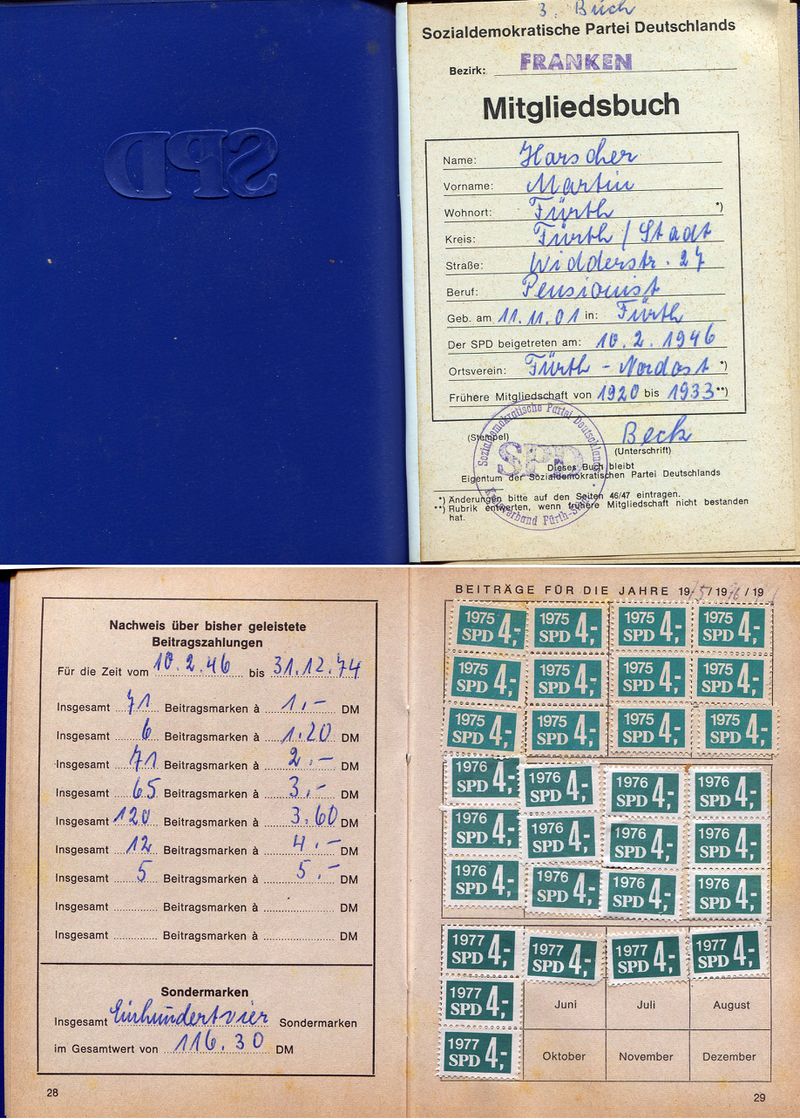 SPD
3. Buch
Sozialdemokratische Partei Deutschlands
Bezirk: FRANKEN
Mitgliedsbuch
Name: Harscher
Vorname: Martin
Wohnort: Fürth *)
Kreis: Fürth / Stadt
Straße: Widderstr. 27
Beruf: Pensionist
Geb. am 11.11.01 in: Fürth
Der SPD beigetreten am: 10.2.1946
Ortsverein: Fürth - Nordost *)
Frühere Mitgliedschaft von 1920 bis 1933 **)
Beck
(Stempel) (Unterschrift)
Sozialdemokratische Partei Deutschlands
SPD
Dieses Buch bleibt
Eigentum der Sozialdemokratischen Partei Deutschlands
*) Änderungen bitte auf den Seiten 46/47 eintragen.
**) Rubrik entwerten, wenn frühere Mitgliedschaft nicht bestanden
hat.
Nachweis über bisher geleistete
Beitragszahlungen
Für die Zeit vom 10.2.46 bis 31.12.74
Insgesamt 71 Beitragsmarken à 1.- DM
Insgesamt 6 Beitragsmarken à 1.20 DM
Insgesamt 71 Beitragsmarken à 2.- DM
Insgesamt 65 Beitragsmarken à 3.- DM
Insgesamt 120 Beitragsmarken à 3.60 DM
Insgesamt 12 Beitragsmarken à 4.- DM
Insgesamt 5 Beitragsmarken à 5.- DM
Insgesamt Beitragsmarken à DM
Insgesamt Beitragsmarken à DM
Sondermarken
Insgesamt Einhundertvier Sondermarken
im Gesamtwert von 116.30 DM
28
BEITRÄGE FÜR DIE JAHRE 1975/1976/19
1975 1975 1975 1975
SPD 4,- SPD 4,- SPD 4,- SPD 4,-
1975 1975 1975 1975
SPD 4,- SPD 4,- SPD 4,- SPD 4,-
1975 1975 1975 1975
SPD 4,- SPD 4,- SPD 4,- SPD 4,-
1976 1976 1976 1976
SPD 4,- SPD 4,- SPD 4,- SPD 4,-
1976 1976 1976 1976
SPD 4,- SPD 4,- SPD 4,- SPD 4,-
1976 1976 1976 1976
SPD 4,- SPD 4,- SPD 4,- SPD 4,-
1977 1977 1977 1977
SPD 4,- SPD 4,- SPD 4,- SPD 4,-
1977
SPD 4,- Juni Juli August
1977
SPD 4,- Oktober November Dezember
29